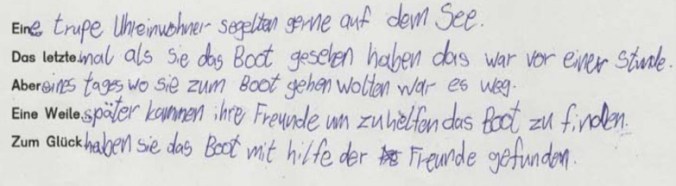 Eine trupe Uhreinwohner segelten gerne auf dem See.
Das letzte mal als sie das Boot gesehen haben das war vor einer Stunde.
Aber eines tages wo sie zum Boot gehen wolten war es weg.
Eine Weile später kammen ihre Freunde um zu helfen das Boot zu finden.
Zum Glück haben sie das Boot mit hilfe der Freunde gefunden.